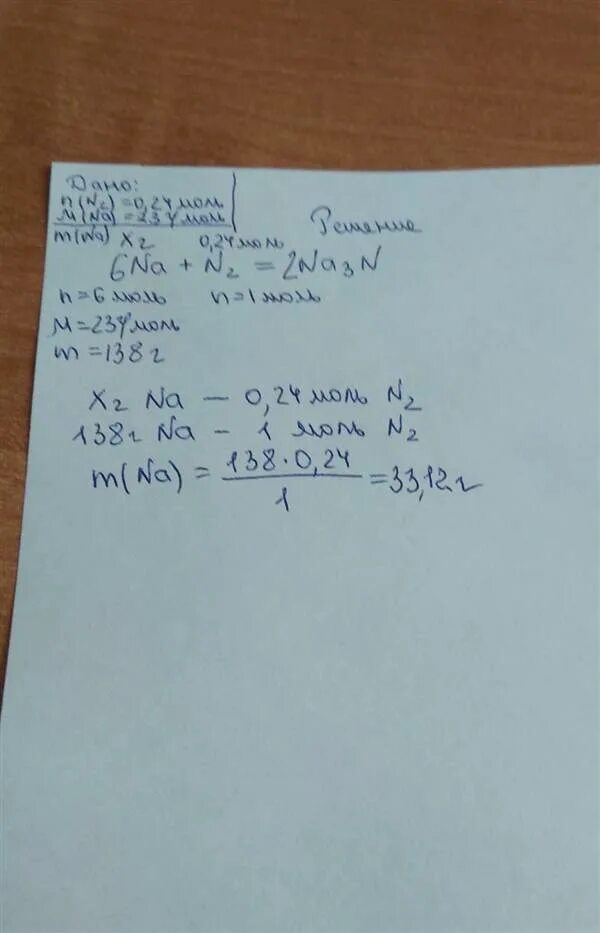 Дано:
n(N₂) = 0,24 моль
M(Na) = 23 г/моль
m(Na) xг 0,24 моль Решение
6Na + N₂ = 2Na₃N
n = 6 моль n = 1 моль
M = 23 г/моль
m = 138 г
xг Na — 0,24 моль N₂
138г Na – 1 моль N₂
m(Na) = 138 · 0,24 / 1 = 33,12 г